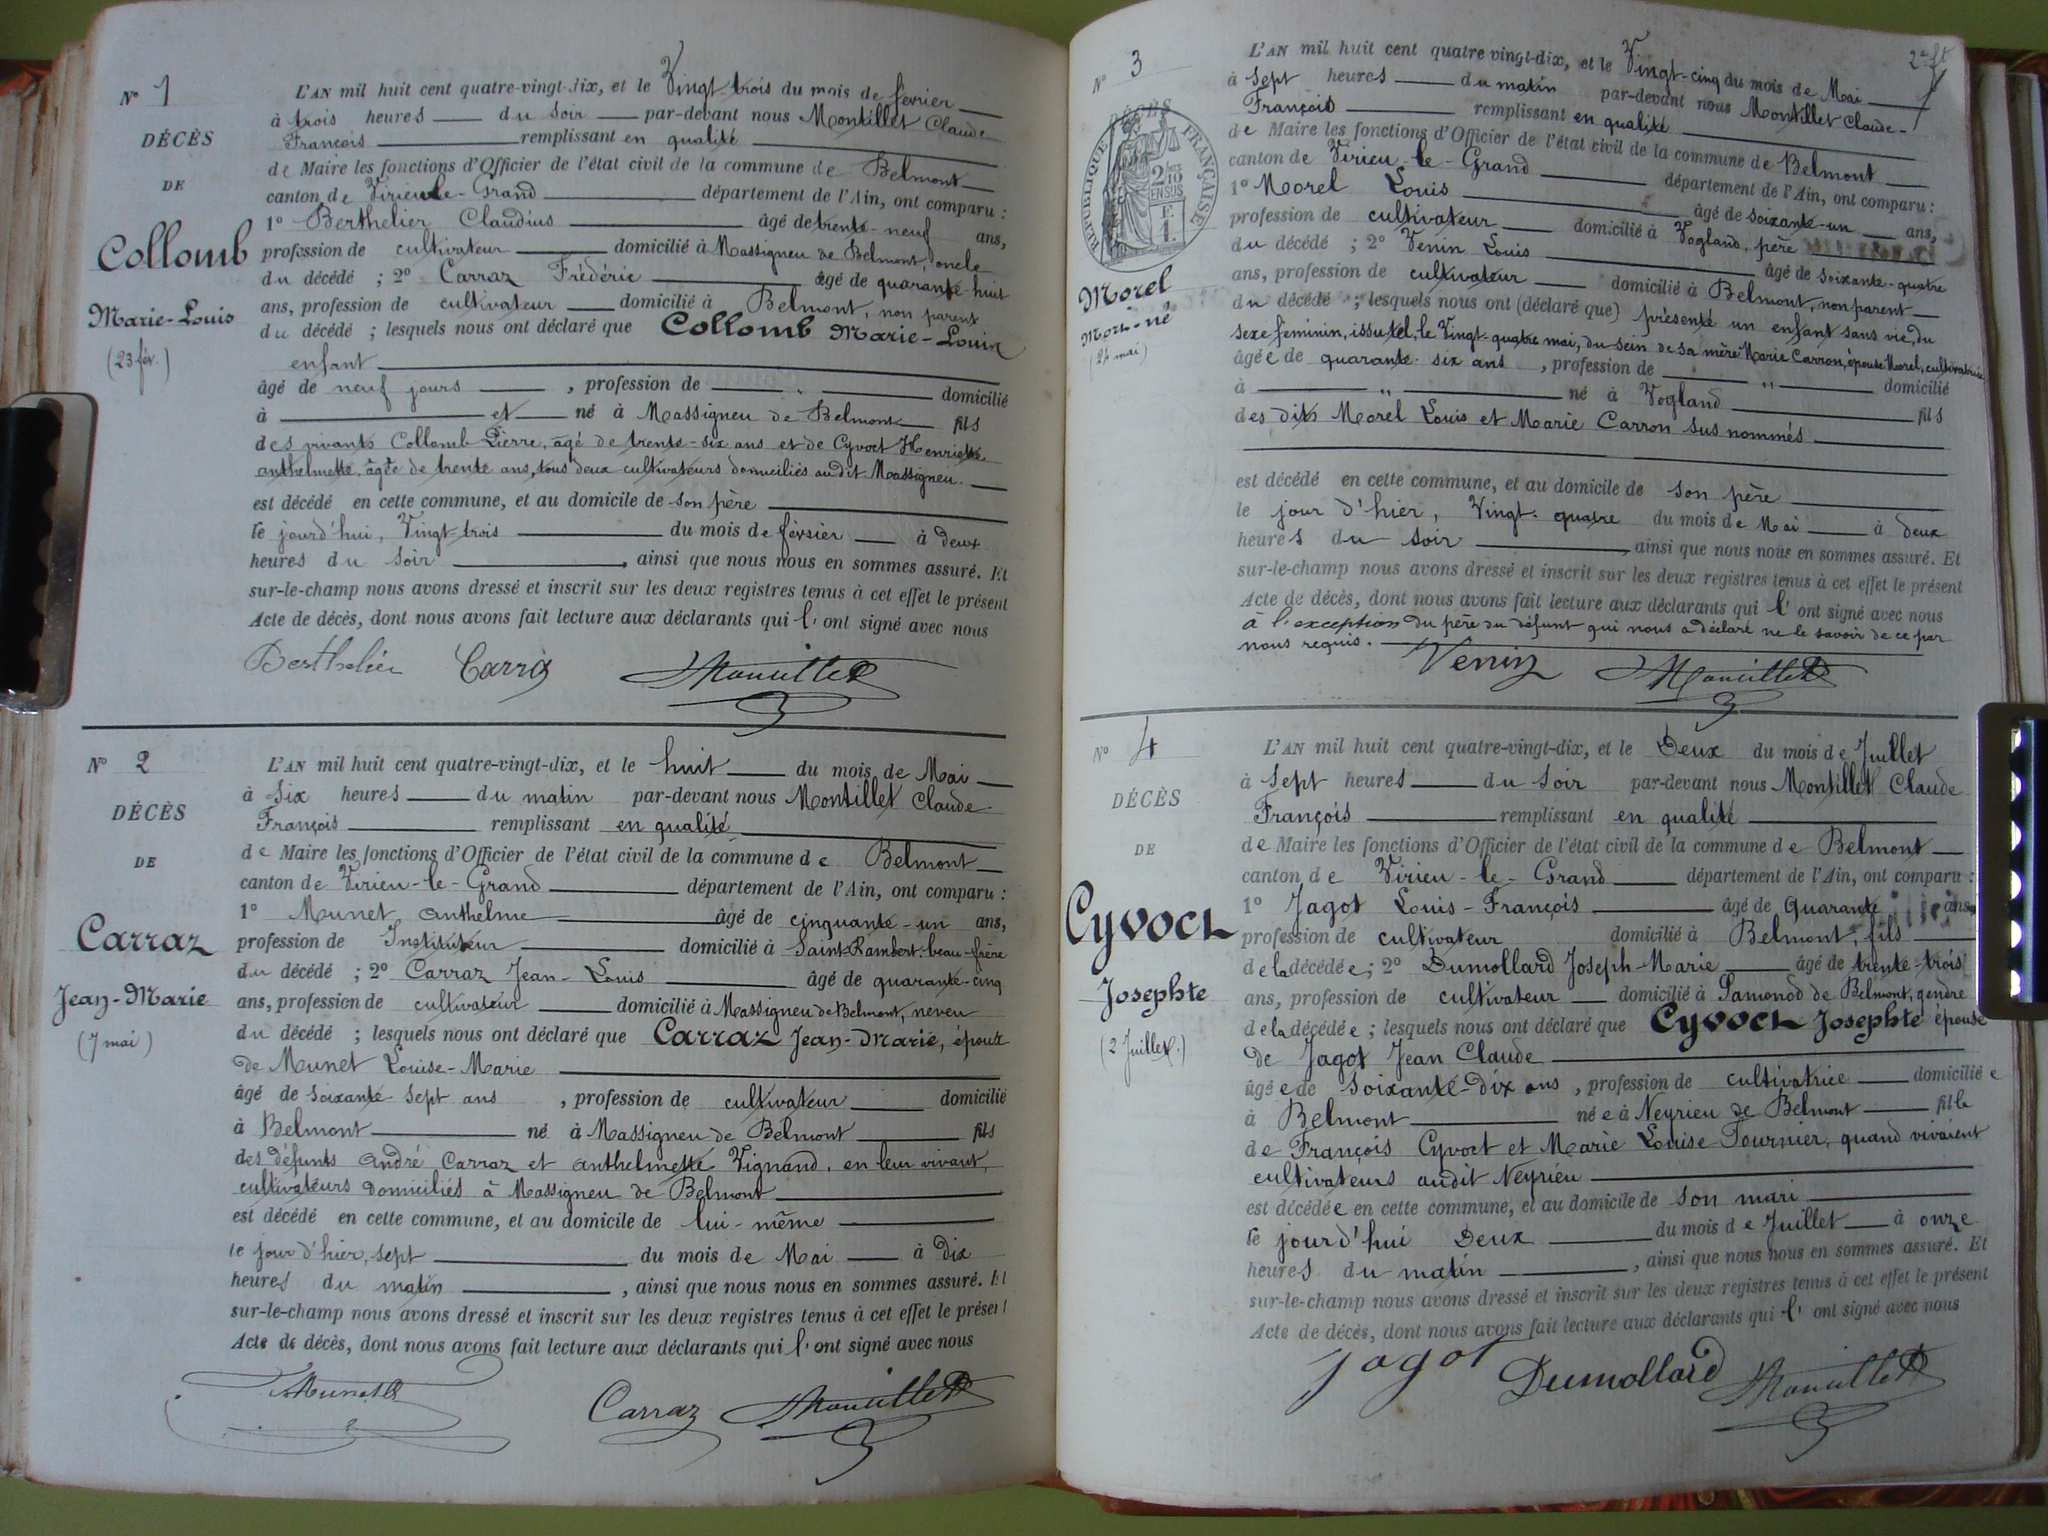 N° 1
DÉCÈS
DE
Collomb
Marie-Louis
(23 fév.)
L'AN mil huit cent quatre-vingt-dix, et le Vingt trois du mois de février
à trois heures du soir par-devant nous Montillet Claude
François remplissant en qualité
de Maire les fonctions d'Officier de l'état civil de la commune de Belmont
canton de Virieu le-Grand département de l'Ain, ont comparu :
1° Berthelier Claudius âgé de trente-neuf ans,
profession de cultivateur domicilié à Massigneu de Belmont, oncle
du décédé ; 2° Carraz Frédéric âgé de quarante-huit
ans, profession de cultivateur domicilié à Belmont, non parent
du décédé ; lesquels nous ont déclaré que Collomb Marie-Louis
enfant
âgé de neuf jours , profession de " domicilié
à et né à Massigneu de Belmont fils
des vivants Collomb Pierre, âgé de trente-six ans et de Cyvoct Henriette
anthelmette, âgée de trente ans, tous deux cultivateurs domiciliés audit Massigneu.
est décédé en cette commune, et au domicile de son père
le jourd'hui, Vingt-trois du mois de février à deux
heures du soir , ainsi que nous nous en sommes assuré. Et
sur-le-champ nous avons dressé et inscrit sur les deux registres tenus à cet effet le présent
Acte de décès, dont nous avons fait lecture aux déclarants qui l'ont signé avec nous
Berthelier Carraz Montillet
N° 2
DÉCÈS
DE
Carraz
Jean-Marie
(7 mai)
L'AN mil huit cent quatre-vingt-dix, et le huit du mois de Mai
à six heures du matin par-devant nous Montillet Claude
François remplissant en qualité
de Maire les fonctions d'Officier de l'état civil de la commune de Belmont
canton de Virieu-le-Grand département de l'Ain, ont comparu :
1° Munet anthelme âgé de cinquante-un ans,
profession de Instituteur domicilié à Saint-Rambert, beau-frère
du décédé ; 2° Carraz Jean-Louis âgé de quarante-cinq
ans, profession de cultivateur domicilié à Massigneu de Belmont, neveu
du décédé ; lesquels nous ont déclaré que Carraz Jean-Marie, époux
de Munet Louise-Marie
âgé de soixante sept ans , profession de cultivateur domicilié
à Belmont né à Massigneu de Belmont fils
des défunts André Carraz et anthelmette Vignand, en leur vivant,
cultivateurs domiciliés à Massigneu de Belmont
est décédé en cette commune, et au domicile de lui-même
le jour d'hier, sept du mois de Mai à dix
heures du matin , ainsi que nous nous en sommes assuré. Et
sur-le-champ nous avons dressé et inscrit sur les deux registres tenus à cet effet le présent
Acte de décès, dont nous avons fait lecture aux déclarants qui l'ont signé avec nous
Munet Carraz Montillet
2e ft
N° 3
RÉPUBLIQUE FRANÇAISE
Morel
Mort-né
(24 mai)
L'AN mil huit cent quatre vingt-dix, et le Vingt-cinq du mois de Mai
à sept heures du matin par-devant nous Montillet Claude-
François remplissant en qualité
de Maire les fonctions d'Officier de l'état civil de la commune de Belmont
canton de Virieu-le-Grand département de l'Ain, ont comparu :
1° Morel Louis âgé de soixante-un ans,
profession de cultivateur domicilié à Vogland, père
du décédé ; 2° Venin Louis âgé de soixante-quatre
ans, profession de cultivateur domicilié à Belmont, non parent
du décédé ; lesquels nous ont (déclaré que) présenté un enfant sans vie, du
sexe féminin, issu tel, le Vingt-quatre mai, du sein de sa mère Marie Carron, épouse Morel, cultivatrice
âgée de quarante-six ans , profession de " domicilié
à " né à Vogland fils
des dits Morel Louis et Marie Carron sus nommés
est décédé en cette commune, et au domicile de son père
le jour d'hier, Vingt-quatre du mois de Mai à deux
heures du soir , ainsi que nous nous en sommes assuré. Et
sur-le-champ nous avons dressé et inscrit sur les deux registres tenus à cet effet le présent
Acte de décès, dont nous avons fait lecture aux déclarants qui l'ont signé avec nous
à l'exception du père du défunt qui nous a déclaré ne le savoir de ce par
nous requis.
Venin Montillet
N° 4
DÉCÈS
DE
Cyvoct
Josephte
(2 Juillet.)
L'AN mil huit cent quatre-vingt-dix, et le Deux du mois de Juillet
à sept heures du soir par-devant nous Montillet Claude
François remplissant en qualité
de Maire les fonctions d'Officier de l'état civil de la commune de Belmont
canton de Virieu-le-Grand département de l'Ain, ont comparu :
1° Jagot Louis-François âgé de Quarante ans
profession de cultivateur domicilié à Belmont, fils
de la décédée ; 2° Dumollard Joseph-Marie âgé de trente-trois
ans, profession de cultivateur domicilié à Samonod de Belmont, gendre
de la décédée ; lesquels nous ont déclaré que Cyvoct Josephte épouse
de Jagot Jean Claude
âgée de soixante-dix ans , profession de cultivatrice domiciliée
à Belmont née à Neyrieu de Belmont fille
de François Cyvoct et Marie Louise Fournier, quand vivaient
cultivateurs audit Neyrieu
est décédée en cette commune, et au domicile de son mari
le jourd'hui Deux du mois de Juillet à onze
heures du matin , ainsi que nous nous en sommes assuré. Et
sur-le-champ nous avons dressé et inscrit sur les deux registres tenus à cet effet le présent
Acte de décès, dont nous avons fait lecture aux déclarants qui l'ont signé avec nous
Jagot Dumollard Montillet